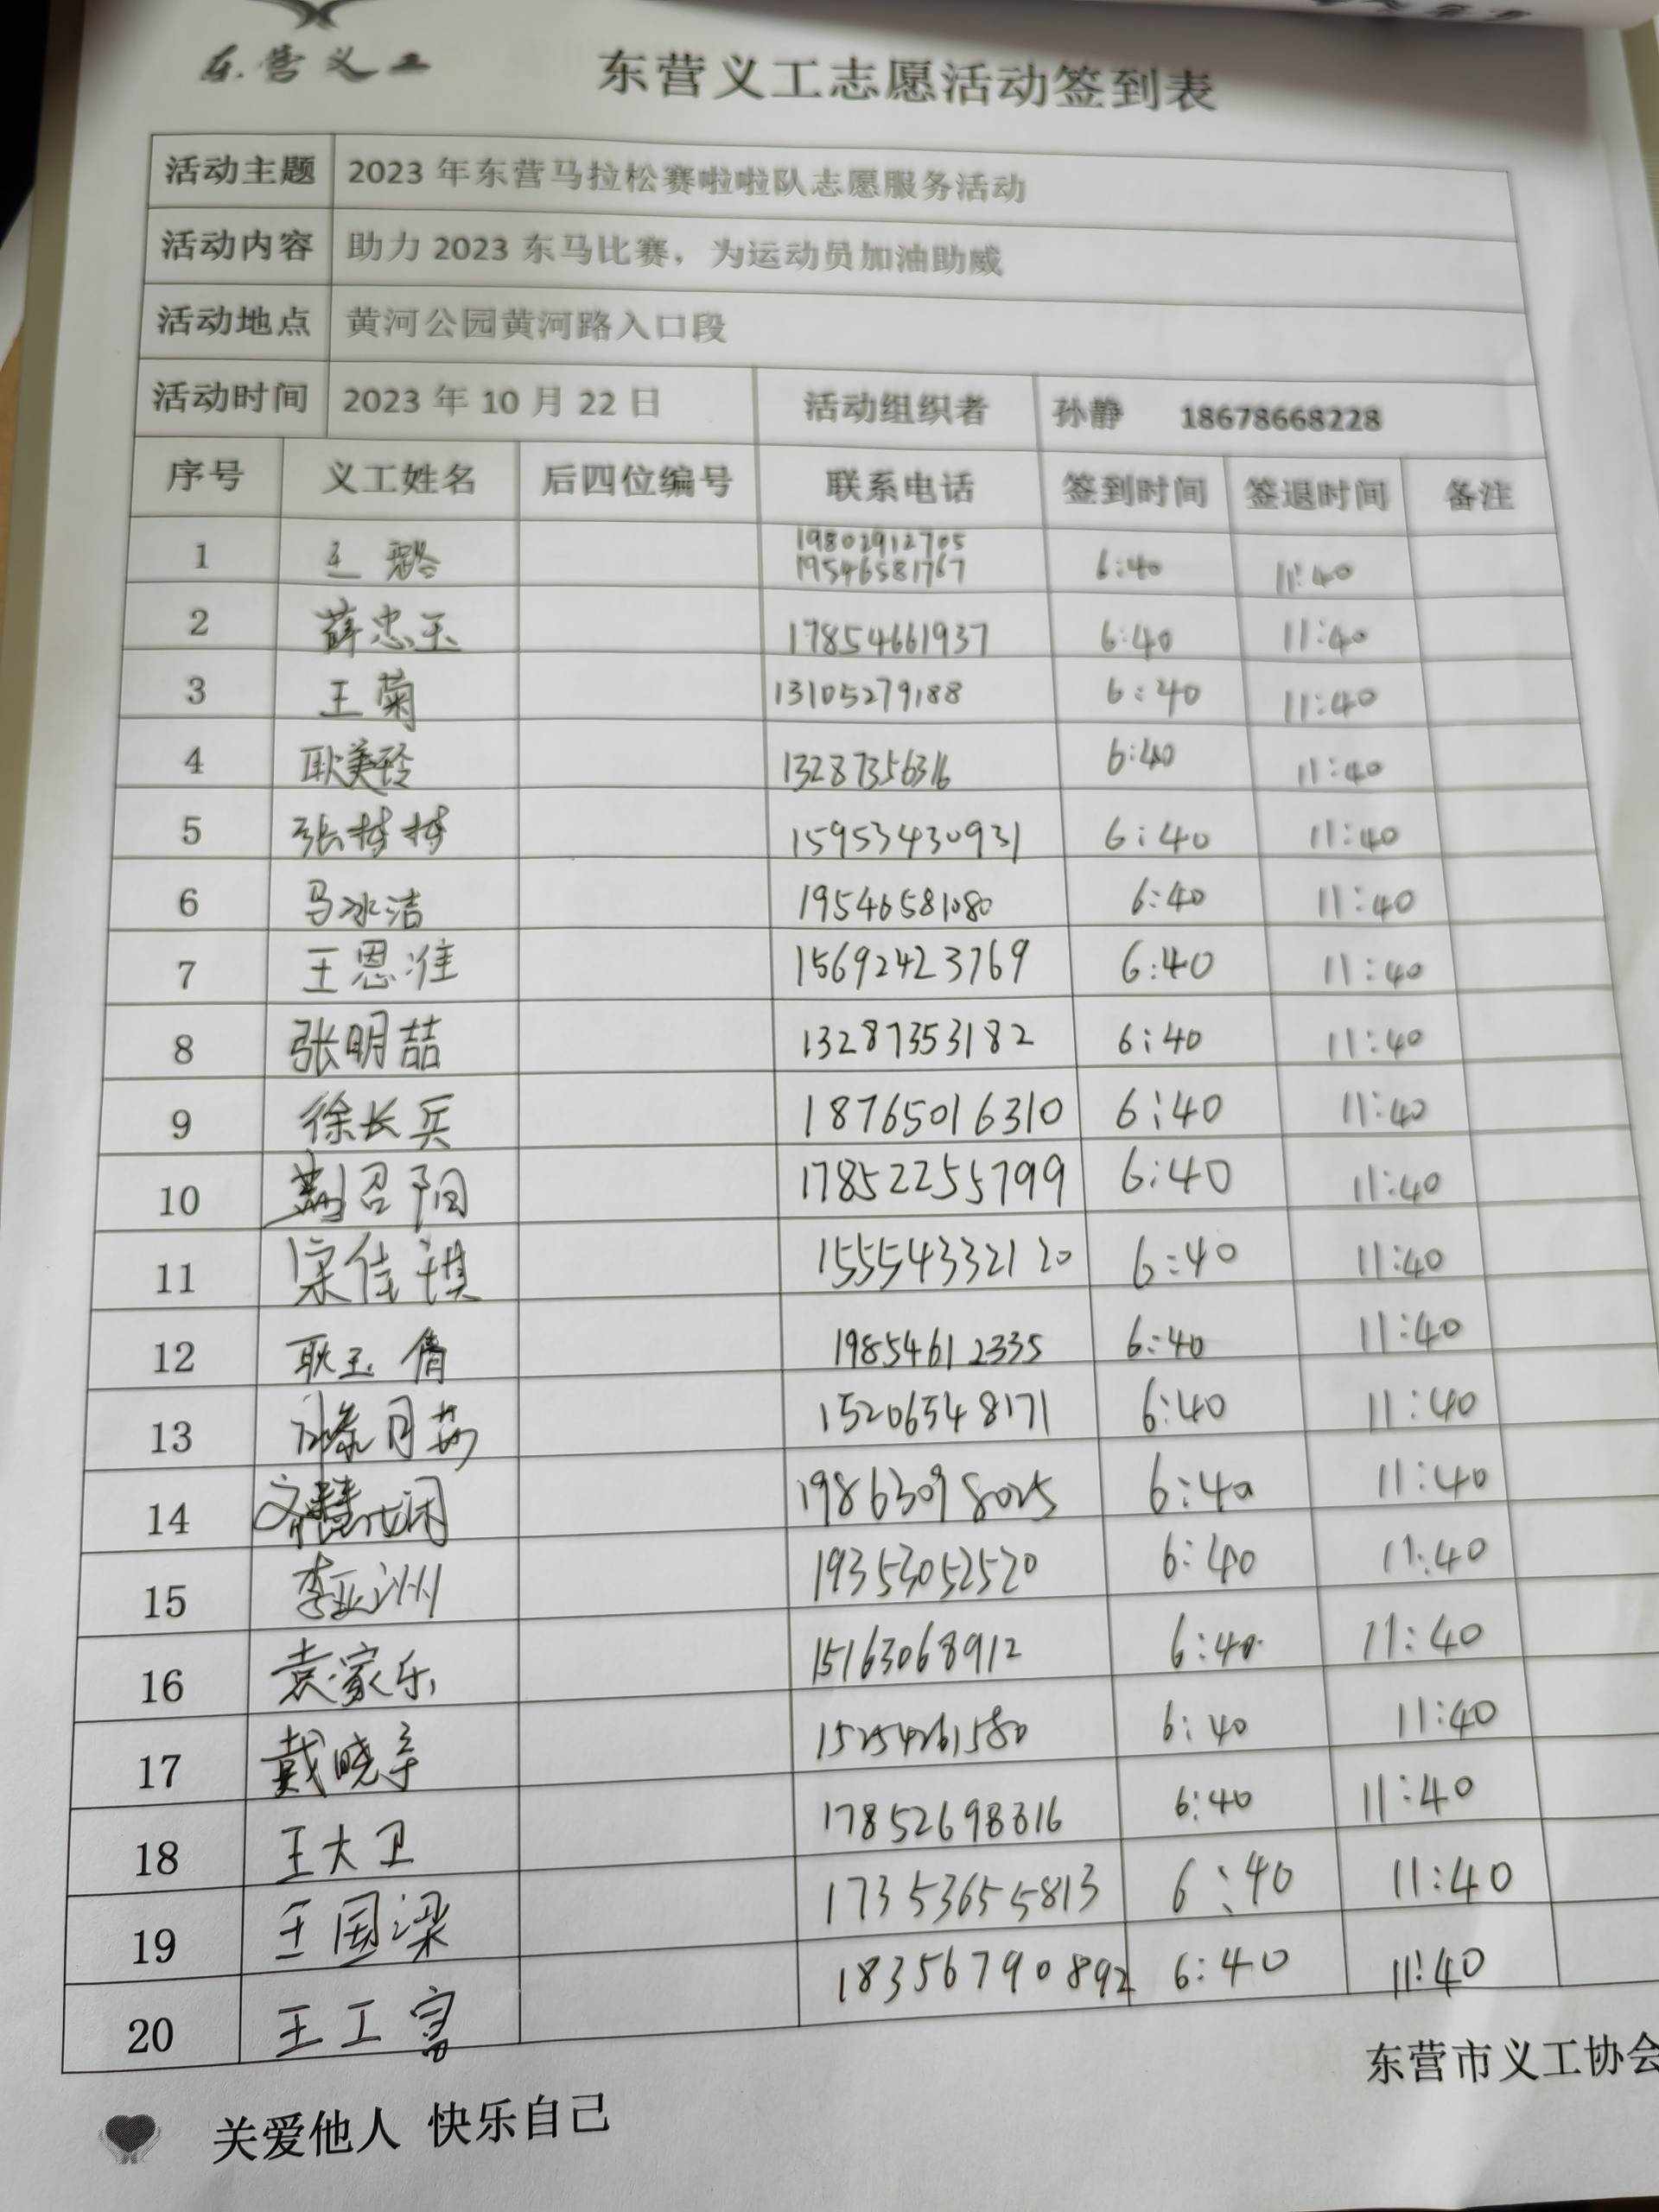 东营义工
东营义工志愿活动签到表
活动主题 2023 年东营马拉松赛啦啦队志愿服务活动
活动内容 助力 2023 东马比赛，为运动员加油助威
活动地点 黄河公园黄河路入口段
活动时间 2023 年 10 月 22 日 活动组织者 孙静 18678668228
序号 义工姓名 后四位编号 联系电话 签到时间 签退时间 备注
19802912705
1 19546581767 6:40 11:40
2 薛忠玉 17854661937 6:40 11:40
3 王菊 13105279188 6:40 11:40
4 耿美玲 13287356316 6:40 11:40
5 张梼梼 15953430931 6:40 11:40
6 马冰洁 19546581080 6:40 11:40
7 王恩准 15692423769 6:40 11:40
8 张明喆 13287353182 6:40 11:40
9 徐长兵 18765016310 6:40 11:40
10 召阳 17852255799 6:40 11:40
11 宋佳祺 15554332120 6:40 11:40
12 耿玉倩 19854612335 6:40 11:40
13 月茹 15206548171 6:40 11:40
14 19863098025 6:40 11:40
15 李亚洲 19353052520 6:40 11:40
16 袁家乐 15163068912 6:40 11:40
17 戴晓宇 15254261580 6:40 11:40
18 王大卫 17852698316 6:40 11:40
19 王国梁 17353655813 6:40 11:40
20 王工富 18356790892 6:40 11:40
东营市义工协会
关爱他人 快乐自己